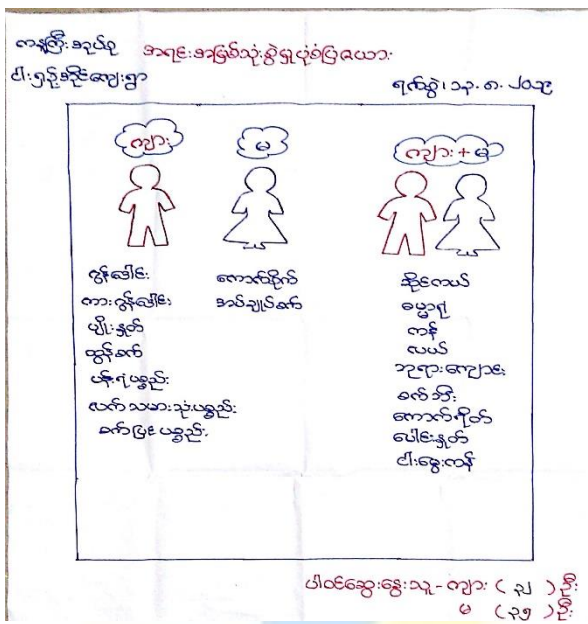 ကနကြီးအုပ်စု
အရင်းအမြစ်သုံးစွဲမှုပုံစံပြဇယား
ငါးရှဉ့်အိုင်ကျေးရွာ
ရက်စွဲ၊ ၁၃.၈.၂၀၁၉
ကျား
မ
ကျား + မ
ထွန်ခေါင်း
ကားထွန်ခေါင်း
ပျိုးနှုတ်
ထွန်စက်
ပန်းရံပစ္စည်း
လက်သမားသုံးပစ္စည်း
စက်ပြင်ပစ္စည်း
ကောက်စိုက်
အပ်ချုပ်စက်
ဆိုင်ကယ်
ဓမ္မာရုံ
ကန်
လယ်
ဘုရားကျောင်း
စက်ဘီး
ကောက်ရိတ်
ပေါင်းနှုတ်
ငါးမွေးကန်
ပါဝင်ဆွေးနွေးသူ - ကျား ( ၃၂ ) ဦး
မ ( ၃၅ ) ဦး